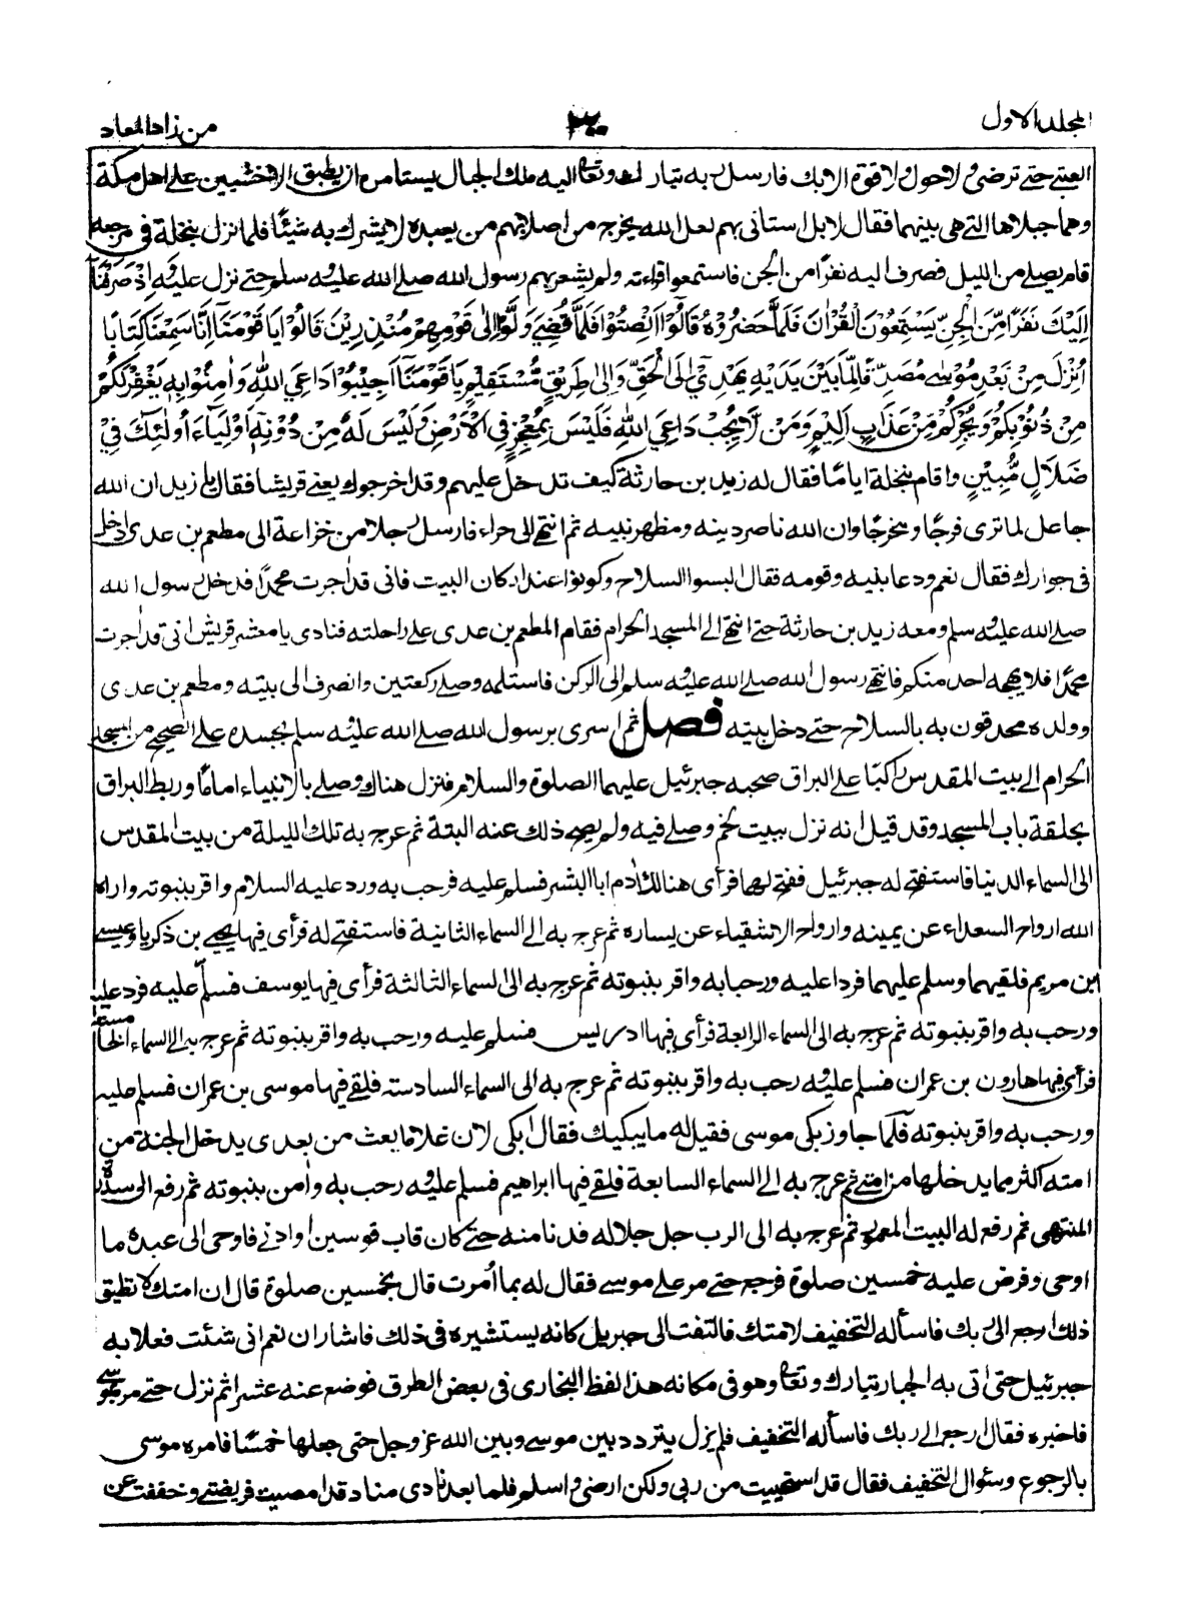 المجلد الاول
٣٠٠
من زاد المعاد
العتبى حتى ترضى ولا حول ولا قوة الا بك فارسل ربه تبارك وتعالى اليه ملك الجبال يستامره ان يطبق الاخشبين على اهل مكة
وهما جبلاها التي هي بينهما فقال لا بل استاني بهم لعل الله يخرج من اصلابهم من يعبده لا يشرك به شيئًا فلما نزل بنخلة في مرجعه
قام يصلي من الليل فصرف اليه نفرًا من الجن فاستمعوا قراءته ولم يشعر بهم رسول الله صلى الله عليه وسلم حتى نزل عليه وَاِذْ صَرَفْنَا
اِلَيْكَ نَفَرًا مِّنَ الْجِنِّ يَسْتَمِعُوْنَ الْقُرْاٰنَ فَلَمَّا حَضَرُوْهُ قَالُوْا اَنْصِتُوْا فَلَمَّا قُضِيَ وَلَّوْا اِلٰى قَوْمِهِمْ مُّنْذِرِيْنَ قَالُوْا يَا قَوْمَنَا اِنَّا سَمِعْنَا كِتَابًا
اُنْزِلَ مِنْ بَعْدِ مُوْسٰى مُصَدِّقًا لِّمَا بَيْنَ يَدَيْهِ يَهْدِيْ اِلَى الْحَقِّ وَاِلٰى طَرِيْقٍ مُّسْتَقِيْمٍ يَا قَوْمَنَا اَجِيْبُوْا دَاعِيَ اللّٰهِ وَاٰمِنُوْا بِهٖ يَغْفِرْ لَكُمْ
مِنْ ذُنُوْبِكُمْ وَيُجِرْكُمْ مِّنْ عَذَابٍ اَلِيْمٍ وَمَنْ لَّا يُجِبْ دَاعِيَ اللّٰهِ فَلَيْسَ بِمُعْجِزٍ فِي الْاَرْضِ وَلَيْسَ لَهٗ مِنْ دُوْنِهٖ اَوْلِيَآءُ اُولٰٓئِكَ فِيْ
ضَلَالٍ مُّبِيْنٍ واقام بنخلة ايامًا فقال له زيد بن حارثة كيف تدخل عليهم وقد اخرجوك يعني قريشا فقال يا زيد ان الله
جاعل لما ترى فرجًا ومخرجًا وان الله ناصر دينه ومظهر نبيه ثم انتهى الى حراء فارسل رجلا من خزاعة الى مطعم بن عدي ادخل
في جوارك فقال نعم ودعا بنيه وقومه فقال البسوا السلاح وكونوا عند اركان البيت فاني قد اجرت محمدًا فدخل رسول الله
صلى الله عليه وسلم ومعه زيد بن حارثة حتى انتهى الى المسجد الحرام فقام المطعم بن عدى على راحلته فنادى يا معشر قريش انى قد اجرت
محمدًا فلا يهجه احد منكم فانتهى رسول الله صلى الله عليه وسلم الى الركن فاستلمه وصلى ركعتين وانصرف الى بيته ومطعم بن عدى
وولده محدقون به بالسلاح حتى دخل بيته فصل ثم اسرى برسول الله صلى الله عليه وسلم بجسده على الصحيح من المسجد
الحرام الى بيت المقدس راكبًا على البراق صحبه جبرئيل عليهما الصلوة والسلام فنزل هناك وصلى بالانبياء امامًا وربط البراق
بحلقة باب المسجد وقد قيل انه نزل ببيت لحم وصلى فيه ولم يصح ذلك عنه البتة ثم عرج به تلك الليلة من بيت المقدس
الى السماء الدنيا فاستفتح له جبرئيل ففتح لهما فرأى هنالك اٰدم ابا البشر فسلم عليه فرحب به ورد عليه السلام واقر بنبوته واراه
الله ارواح السعداء عن يمينه وارواح الاشقياء عن يساره ثم عرج به الى السماء الثانية فاستفتح له فرأى فيها يحيى بن ذكريا وعيسى
ابن مريم فلقيهما وسلم عليهما فردا عليه ورحبا به واقر بنبوته ثم عرج به الى السماء الثالثة فرأى فيها يوسف فسلّم عليه فرد عليه
ورحب به واقر بنبوته ثم عرج به الى السماء الرابعة فرأى فيها ادريس فسلم عليه ورحب به واقر بنبوته ثم عرج به الى السماء الخامسة
فرأى فيها هارون بن عمران فسلم عليه ورحب به واقر بنبوته ثم عرج به الى السماء السادسته فلقى فيها موسى بن عمران فسلم عليه
ورحب به واقر بنبوته فلما جاوز بكى موسى فقيل له ما يبكيك فقال ابكى لان غلاما بعث من بعدى يدخل الجنة من
امته اكثر مما يدخلها من امتى ثم عرج به الى السماء السابعة فلقى فيها ابراهيم فسلم عليه ورحب به واٰمن بنبوته ثم رفع الى سدرة
المنتهى ثم رفع له البيت المعمور ثم عرج به الى الرب جل جلاله فدنا منه حتى كان قاب قوسين او ادنى فاوحى الى عبده ما
اوحى وفرض عليه خمسين صلوة فرجع حتى مر على موسى فقال له بما اُمرت قال بخمسين صلوة قال ان امتك لا تطيق
ذلك ارجع الى ربك فاسأله التخفيف لامتك فالتفت الى جبريل كانه يستشيره في ذلك فاشار ان نعم انى شئت فعلا به
جبرئيل حتى اتى به الجبار تبارك وتعالى وهو فى مكانه هذا لفظ البخارى فى بعض الطرق فوضع عنه عشرا ثم نزل حتى مر بموسى
فاخبره فقال ارجع الى ربك فاسأله التخفيف فلم يزل يتردد بين موسى وبين الله عز وجل حتى جعلها خمسًا فامره موسى
بالرجوع وسئوال التخفيف فقال قد استحييت من ربى ولكن ارضى واسلم فلما بعد نادى مناد قد امضيت فريضتى وخففت عن